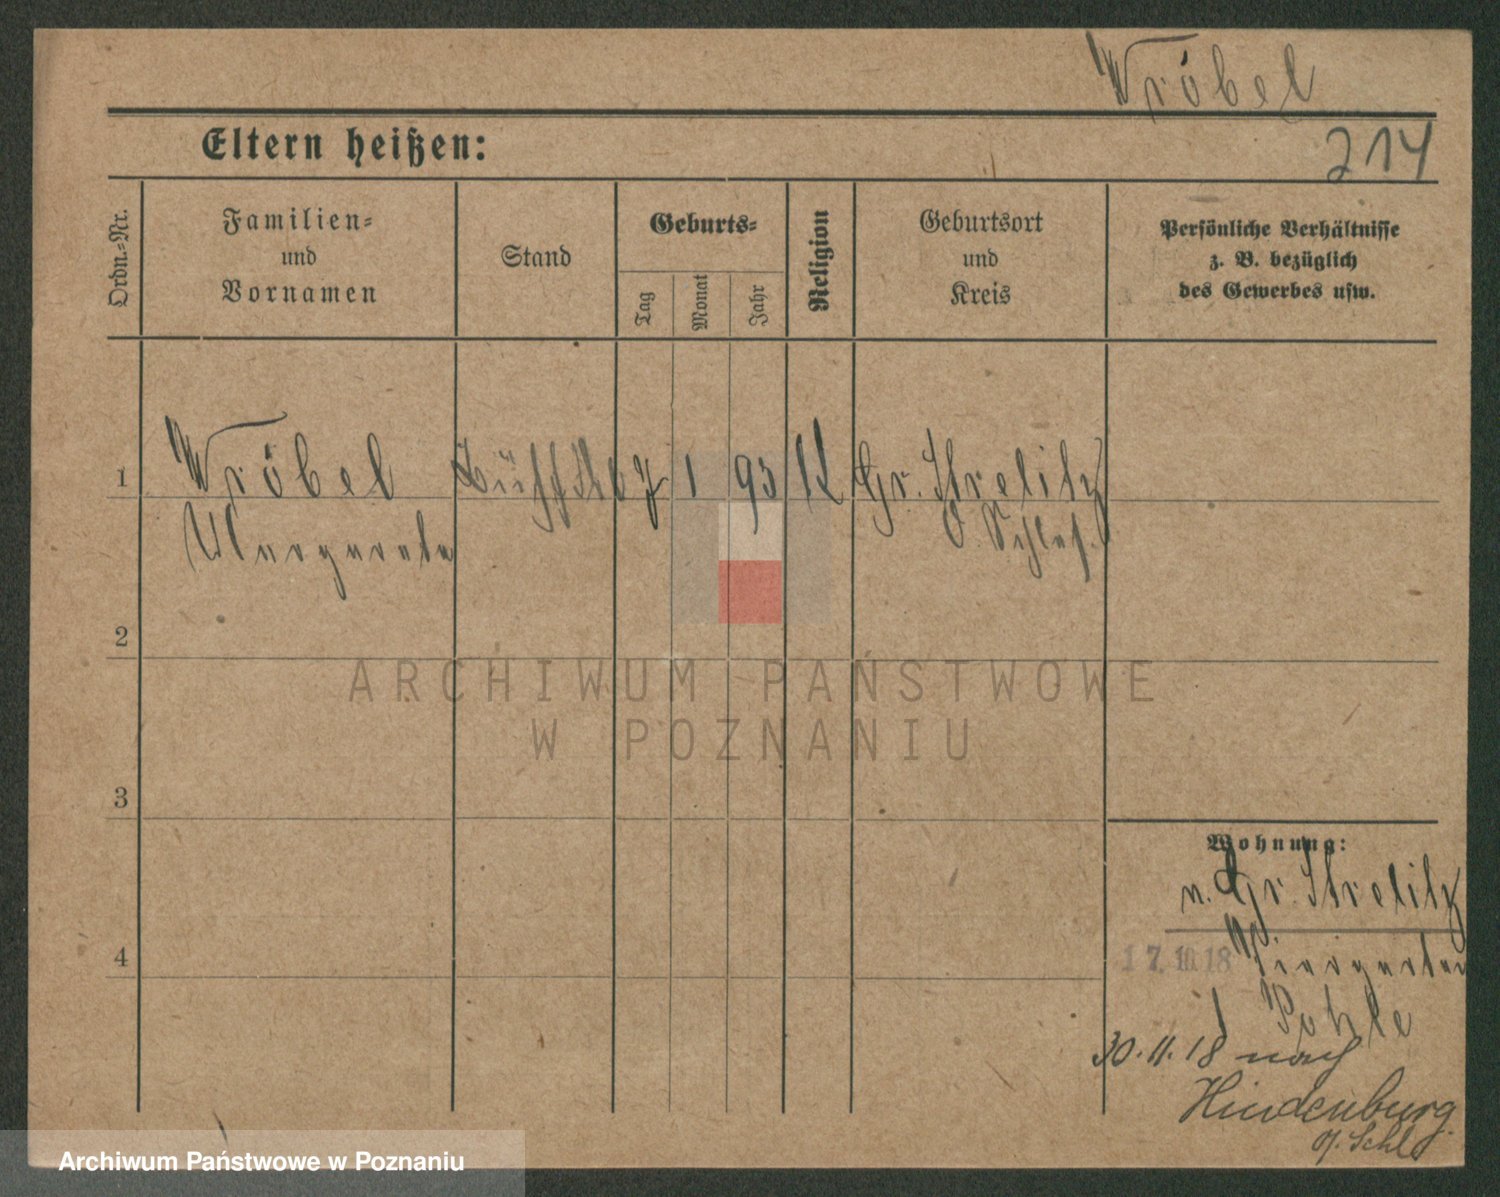 Wróbel
214
Eltern heißen:
Ordn.-Nr.
Familien-
und
Vornamen
Stand
Geburts-
Tag
Monat
Jahr
Religion
Geburtsort
und
Kreis
Persönliche Verhältnisse
z. B. bezüglich
des Gewerbes usw.
1 Wróbel 7 1 93 K Gr. Strelitz
Margarete O. Schles.
2
3
4
Wohnung:
n. Gr. Strelitz
17. 10. 18
30. 11. 18 nach
Hindenburg
O/. Schl
ARCHIWUM PAŃSTWOWE
W POZNANIU
Archiwum Państwowe w Poznaniu